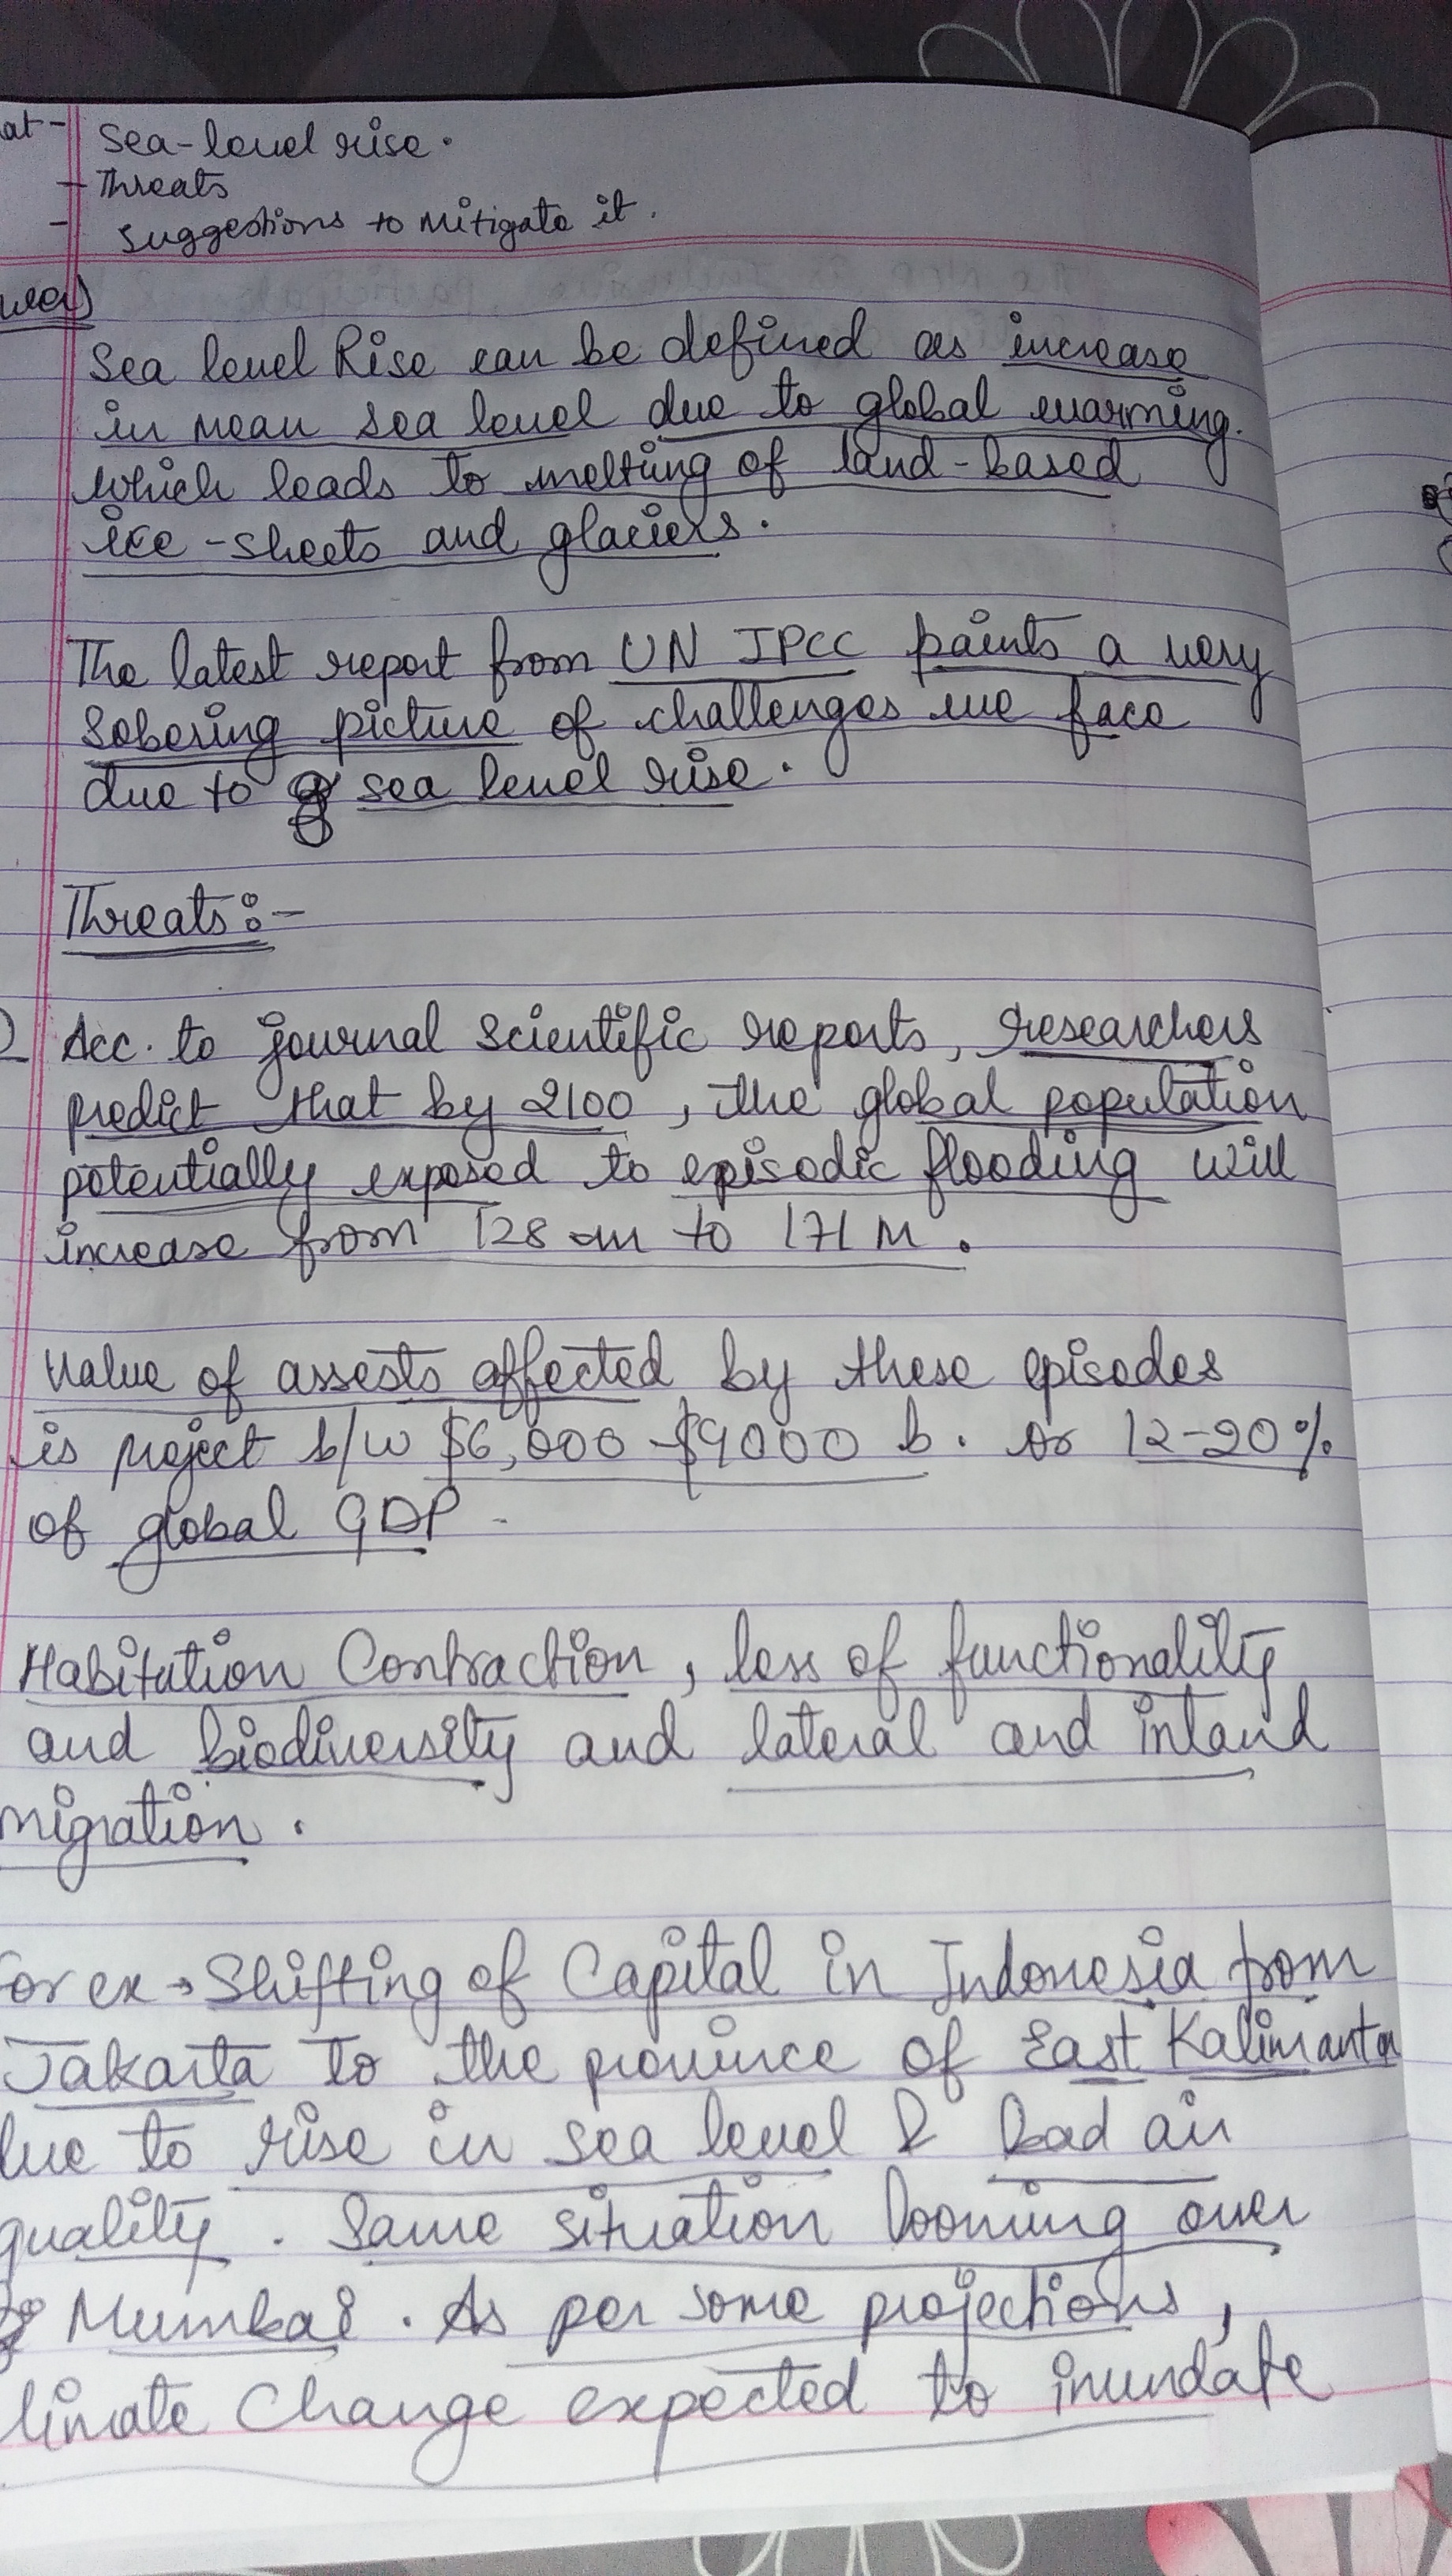 at - Sea-level rise.
- Threats
- Suggestions to mitigate it.
wer)
Sea level Rise can be defined as increase
in mean sea level due to global warming.
which leads to melting of land-based
ice-sheets and glaciers.
The latest report from UN IPCC paints a very
sobering picture of challenges we face
due to sea level rise.
Threats:-
Acc. to journal scientific reports, researchers
predict that by 2100, the global population
potentially exposed to episodic flooding will
increase from 128 to 171 M.
Value of assests affected by these episodes
is project b/w $6,000-$9000 b. or 12-20%
of global GDP.
Habitation Contraction, loss of functionality
and biodiversity and lateral and inland
migration.
For ex → Shifting of Capital in Indonesia from
Jakarta to the province of East Kalimanta
due to rise in sea level & bad air
quality. Same situation looming over
Mumbai. As per some projections,
limate Change expected to inundate